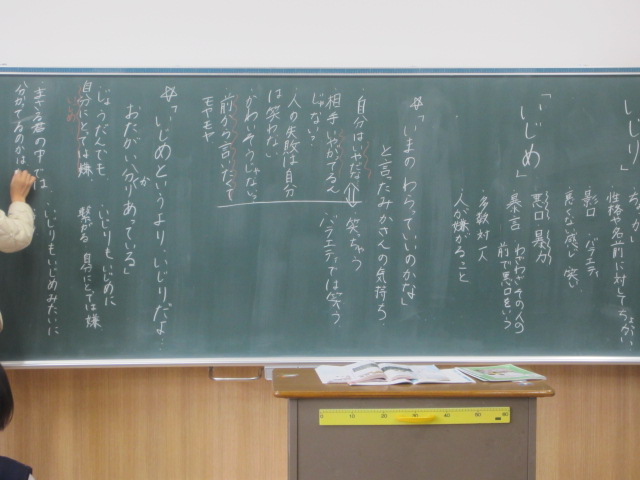 いじり」
性格や名前に対してちょっかい
影口 バラエティ
悪くない感じ 笑い
「いじめ」
悪口 暴力
暴言 わざわざその人の
前で悪口をいう
多数対一人
人が嫌がること
☆「いまのわらっていいのかな」
と言たみかさんの気持ち
自分はいやだな ⇔ 笑ちゃう
相手いやがてるん バラエティでは笑う
じゃない?
人の失敗は自分
は笑わない
かわいそうじゃないか
前から言いたくて
モヤモヤ
☆「いじめというより、いじりだよ…
おたがい分かりあっている」
じょうだんでも、 いじりもいじめに
自分にとっては嫌、 繋がる 自分にとては嫌
いじめ
まさる君の中では いじりもいじめみたいに
分かってるのかは